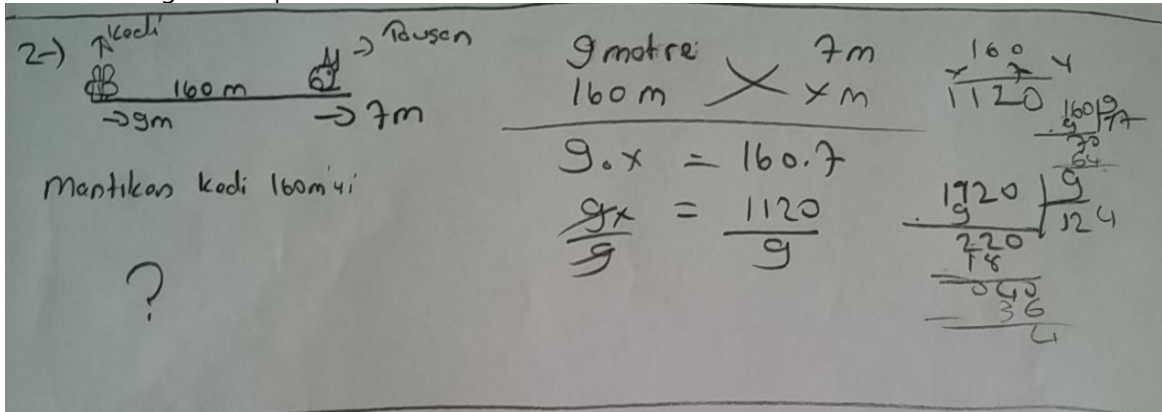 2-)
Kedi
Tavşan
160 m
→9m
→7m
Mantıken kedi 160m'yi
?
9 metre 7m
160 m x m
9.x = 160.7
9x/9 = 1120/9
160
x 7
1120
160 9
9 17
70
64
1120 9
9 124
220
18
040
36
4